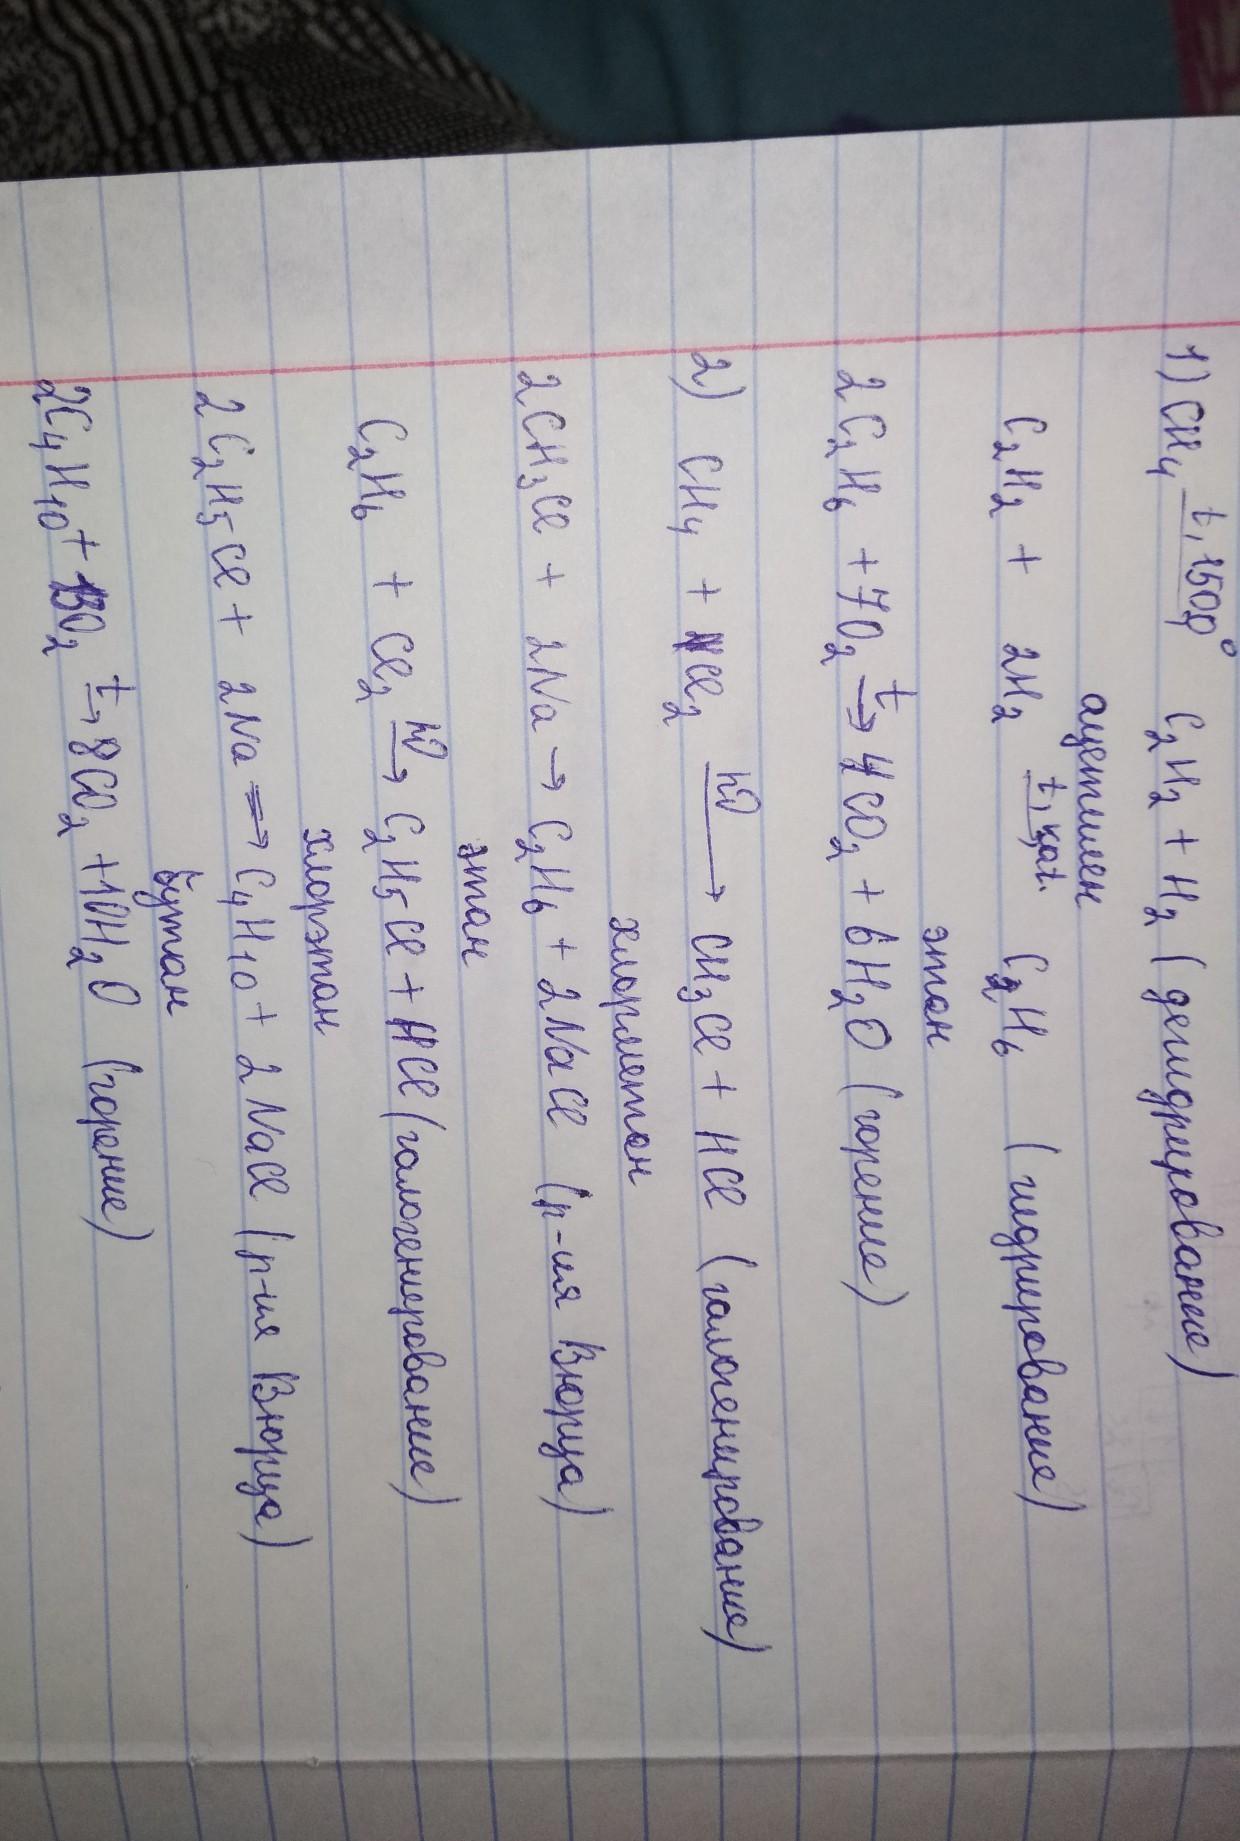 1) CH₄ t,1500° C₂H₂ + H₂ (дегидрирование)
ацетилен
C₂H₂ + 2H₂ t, кат. C₂H₆ (гидрирование)
этан
2C₂H₆ + 7O₂ t→ 4CO₂ + 6H₂O (горение)
2) CH₄ + Cl₂ hν→ CH₃Cl + HCl (галогенирование)
хлорметан
2CH₃Cl + 2Na → C₂H₆ + 2NaCl (р-ия Вюрца)
этан
C₂H₆ + Cl₂ hν→ C₂H₅Cl + HCl (галогенерование)
хлорэтан
2C₂H₅Cl + 2Na → C₄H₁₀ + 2NaCl (р-ия Вюрца)
бутан
2C₄H₁₀ + 13O₂ t→ 8CO₂ + 10H₂O (горение)